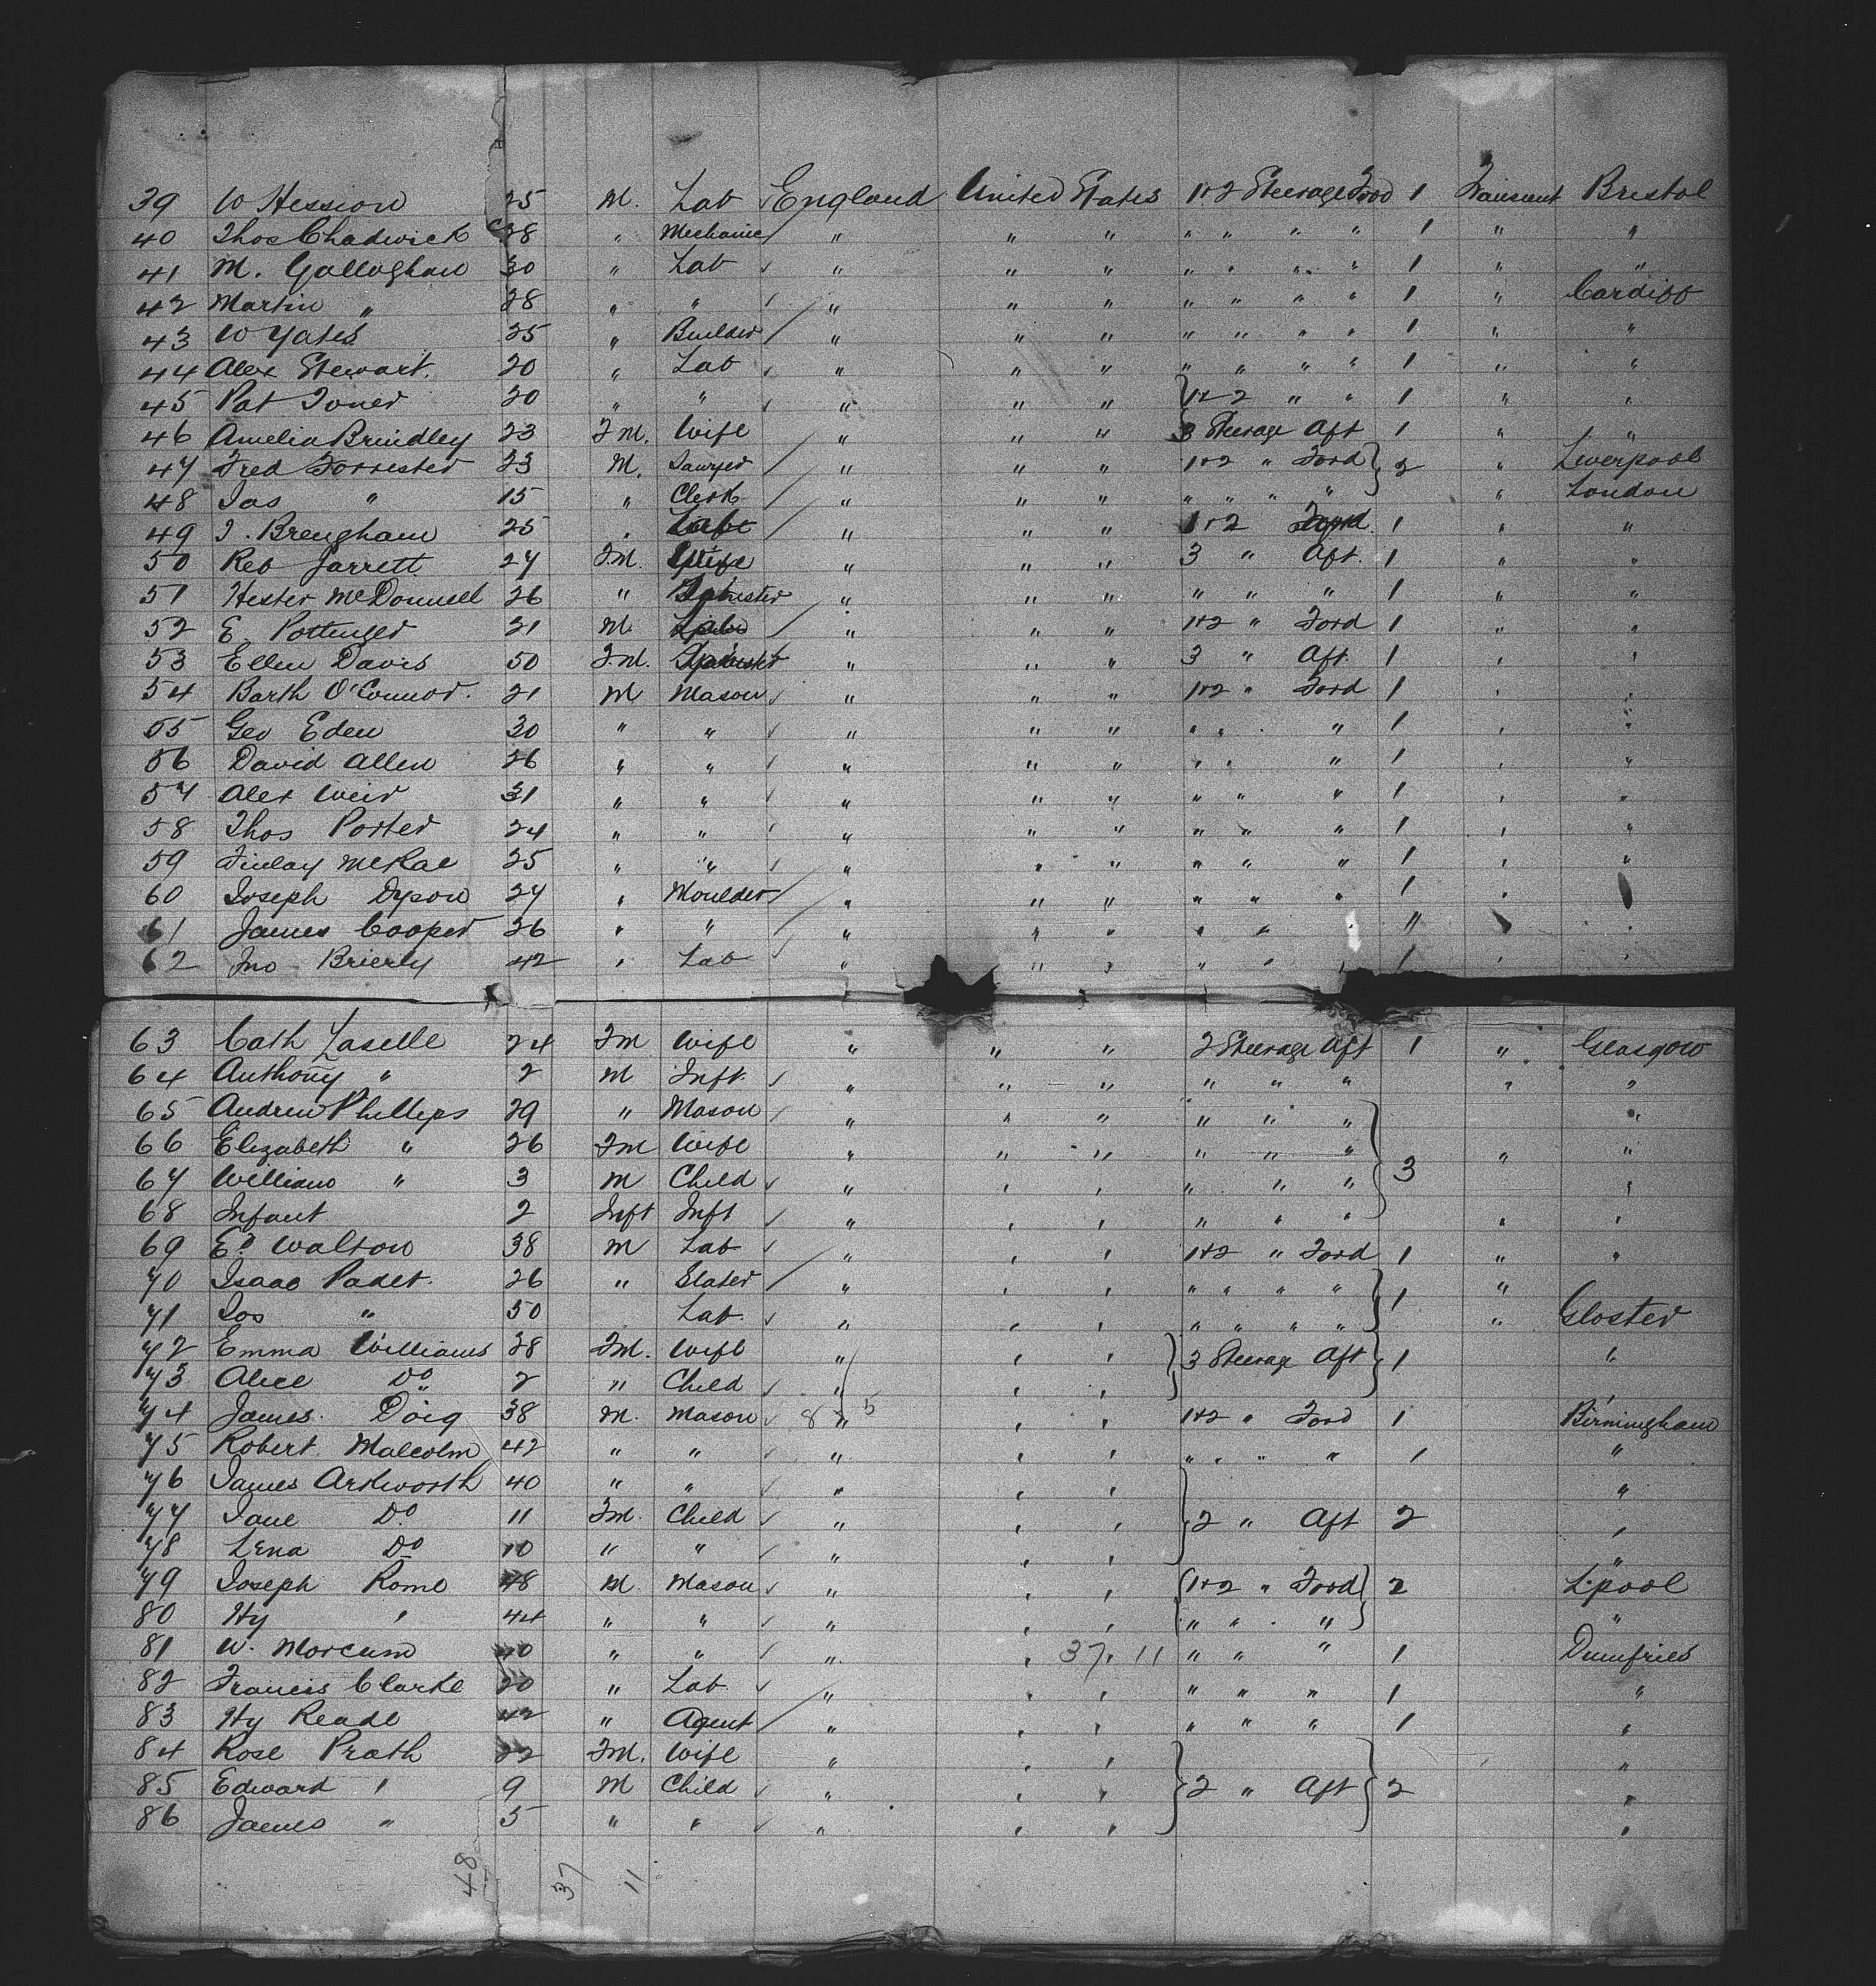 39 W Hession 25 M. Lab England United States 1+2 Steerage Ford 1 Transcent Bristol
40 Thos Chadwick 28 " Mechanic " " " " " " " 1 " "
41 M. Gallaghan 30 " Lab " " " " " " " 1 " "
42 Martin " 28 " " " " " " " " " 1 " Cardiff
43 W Yates 25 " Builder " " " " " " " 1 " "
44 Alex Stewart. 20 " Lab " " " " " " " 1 " "
45 Pat Toner 20 " " " " " 1+2 " " 1 " "
46 Amelia Brindley 23 F.M. Wife " " " 3 Steerage Aft 1 " "
47 Fred Forrester 23 M. Sawyer " " " 1+2 " Ford 2 " Liverpool
48 Jas " 15 " Clerk " " " " " " " " London
49 J. Brengham 25 " " " " 1+2 Ford 1 " "
50 Reb Jarrett 24 F.M. Wife " " " 3 " Aft. 1 " "
51 Hester McDonnell 26 " Spinster " " " " " " 1 " "
52 E. Pottenger 21 M. Lab " " " 1+2 " Ford 1 " "
53 Ellen Davis 50 F.M. Spinster " " " 3 " Aft. 1 " "
54 Barth O'Connor. 21 M Mason " " " 1+2 " Ford 1 " "
55 Geo Eden 30 " " " " " " " " 1 " "
56 David Allen 26 " " " " " " " " 1 " "
57 Alex Weir 31 " " " " " " " " 1 " "
58 Thos Porter 24 " " " " " " " " 1 " "
59 Finlay McRae 25 " " " " " " " " 1 " "
60 Joseph Dyson 27 " Moulder " " " " " " 1 "
61 James Cooper 26 " " " " " " " " "
62 Jno Brierly 42 " Lab " " " " " " 1 " "
63 Cath Laselle 24 Fm Wife " " " 2 Steerage Aft 1 " Glasgow
64 Anthony " 2 M Inft. " " " " " " " "
65 Andrew Phillips 29 " Mason " " " " " " "
66 Elizabeth " 26 Fm Wife " " " " " " " "
67 William " 3 M Child " " " " " " 3 "
68 Infant 2 Inft Inft " " " " " " " "
69 Ed Walton 38 M Lab " " " 1+2 " Ford 1 " "
70 Isaac Padet. 26 " Slater " " " " " " " 1 "
71 Jos " 50 Lab. " " " " " " " " Gloster
72 Emma Williams 28 F.M. Wife " " " 3 Steerage Aft 1 "
73 Alice Do 2 " Child " " "
74 James. Doig 38 M. Mason 85 " " " 1+2 " Ford 1 Birmingham
75 Robert Malcolm 42 " " " " " " " " " 1 "
76 James Arkworth 40 " " " " " "
77 Jane Do 11 F.M. Child " " " 2 " Aft 2 "
78 Lena Do 10 " " " " " "
79 Joseph Rome 48 M. Mason " " " 1+2 " Ford 2 L'pool
80 Hy " 44 " " " " " " " " " "
81 W. Morcum 40 " " " " 37 " 11 " " " 1 Dumfries
82 Francis Clarke 20 " Lab. " " " " " " 1 "
83 Hy Reade 42 " Agent " " " " " " 1 "
84 Rose Prath 22 F.M. Wife " " " "
85 Edward " 9 M Child " " " 2 " Aft 2 "
86 James " 5 " " " " " "
48 37 11